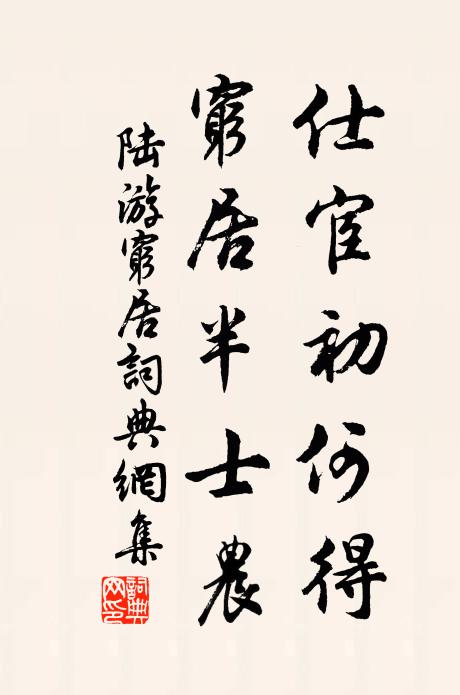 仕宦初何得
窮居半士農
陸游窮居詞典網集
詞典網印